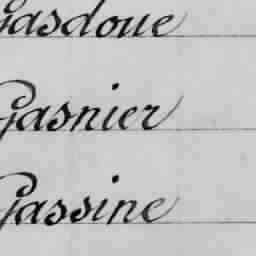 Gasdoue
Gasnier
Gassine